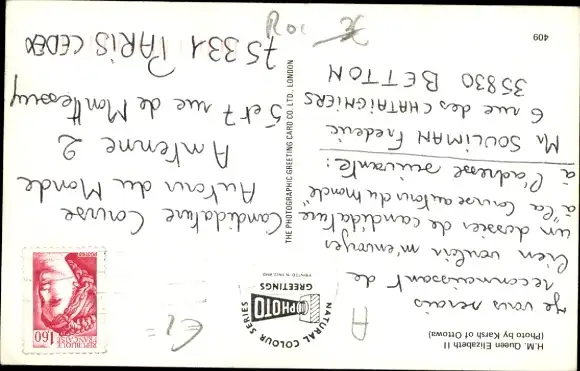 H.M. Queen Elizabeth II
(Photo by Karsh of Ottowa)
Je vous serais
reconnaissant de
bien vouloir m'envoyer
un dossier de candidature
à "la Course autour du monde"
à l'adresse suivante :
Mr SOULIMAN Frederic
6 rue des CHATAIGNIERS
35830 BETTON
409
A
NATURAL COLOUR SERIES
PHOTO
GREETINGS
PRINTED IN ENGLAND
THE PHOTOGRAPHIC GREETING CARD CO. LTD., LONDON
REPUBLIQUE
FRANÇAISE
1,60
POSTES
Candidature Course
Autour du Monde
Antenne 2
5 et 7 rue de Monttessuy
75331 PARIS CEDEX